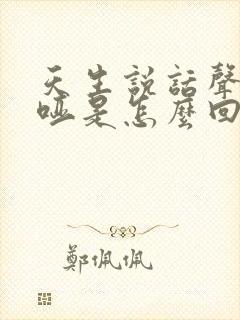 天生説話聲
啞是怎麼回
鄭佩佩